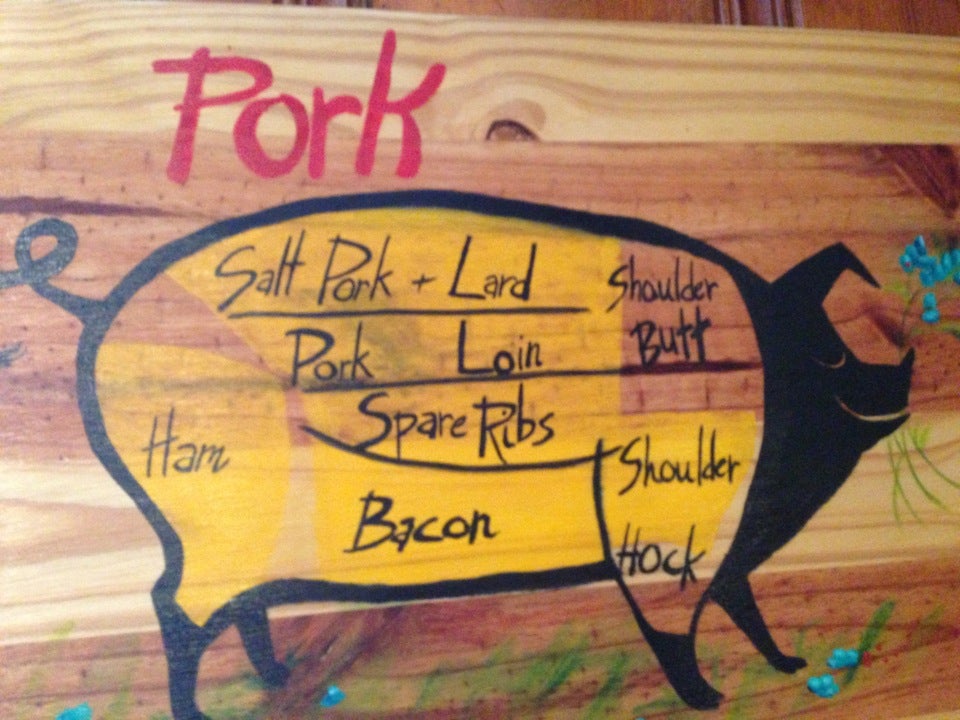 Pork
Salt Pork + Lard
Shoulder
Butt
Pork Loin
Spare Ribs
Ham
Shoulder
Hock
Bacon